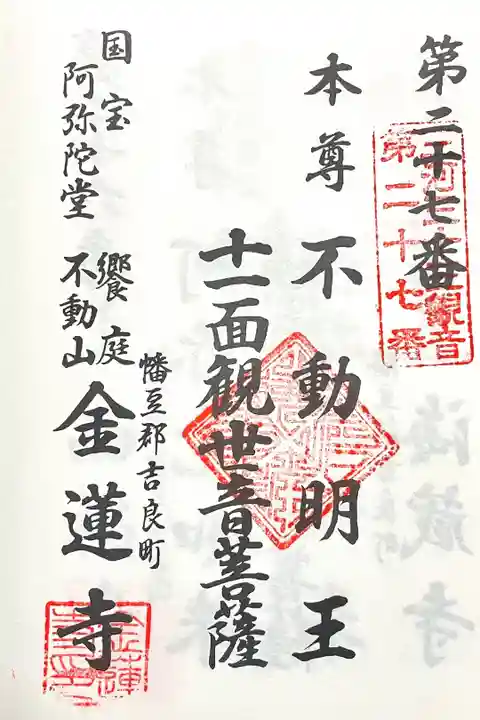 第二十七番
第二十七番
本尊 不動明王
十一面観世音菩薩
幡豆郡吉良町
饗庭
不動山 金蓮寺
国宝
阿弥陀堂